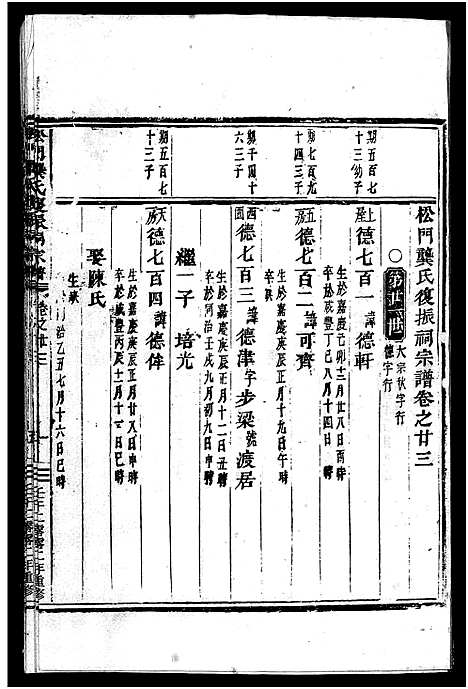 松門龔氏復振祠宗譜卷之廿三
第廿二世
大宗秋字行
德字行
期五百七
十三幼子
上屋
德七百一
諱德軒
生於嘉慶己卯十二月廿八日巳時
卒於咸豐丁巳八月十四日 時
期七百九
十四三子
五
德七百二
諱可齊
生於嘉慶庚辰正月十九日午時
卒於 年 月 日 時
期千四十
六三子
西園
德七百三
諱德津字步梁號渡居
生於嘉慶庚辰正月十二日丑時
卒於同治壬戌九月初九日申時
繼一子
培光
期五百七
十三子
天房
德七百四
諱德俸
生於嘉慶庚辰正月十九日申時
卒於咸豐丙辰十一月十一日巳時
娶陳氏
生
治乙丑七月十六日巳時
卷之廿三
年重修